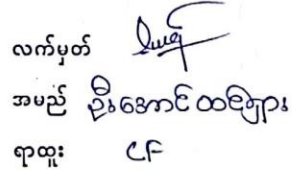 လက်မှတ်
အမည် ဦးအောင်ထင်ကျား
ရာထူး ၎င်း